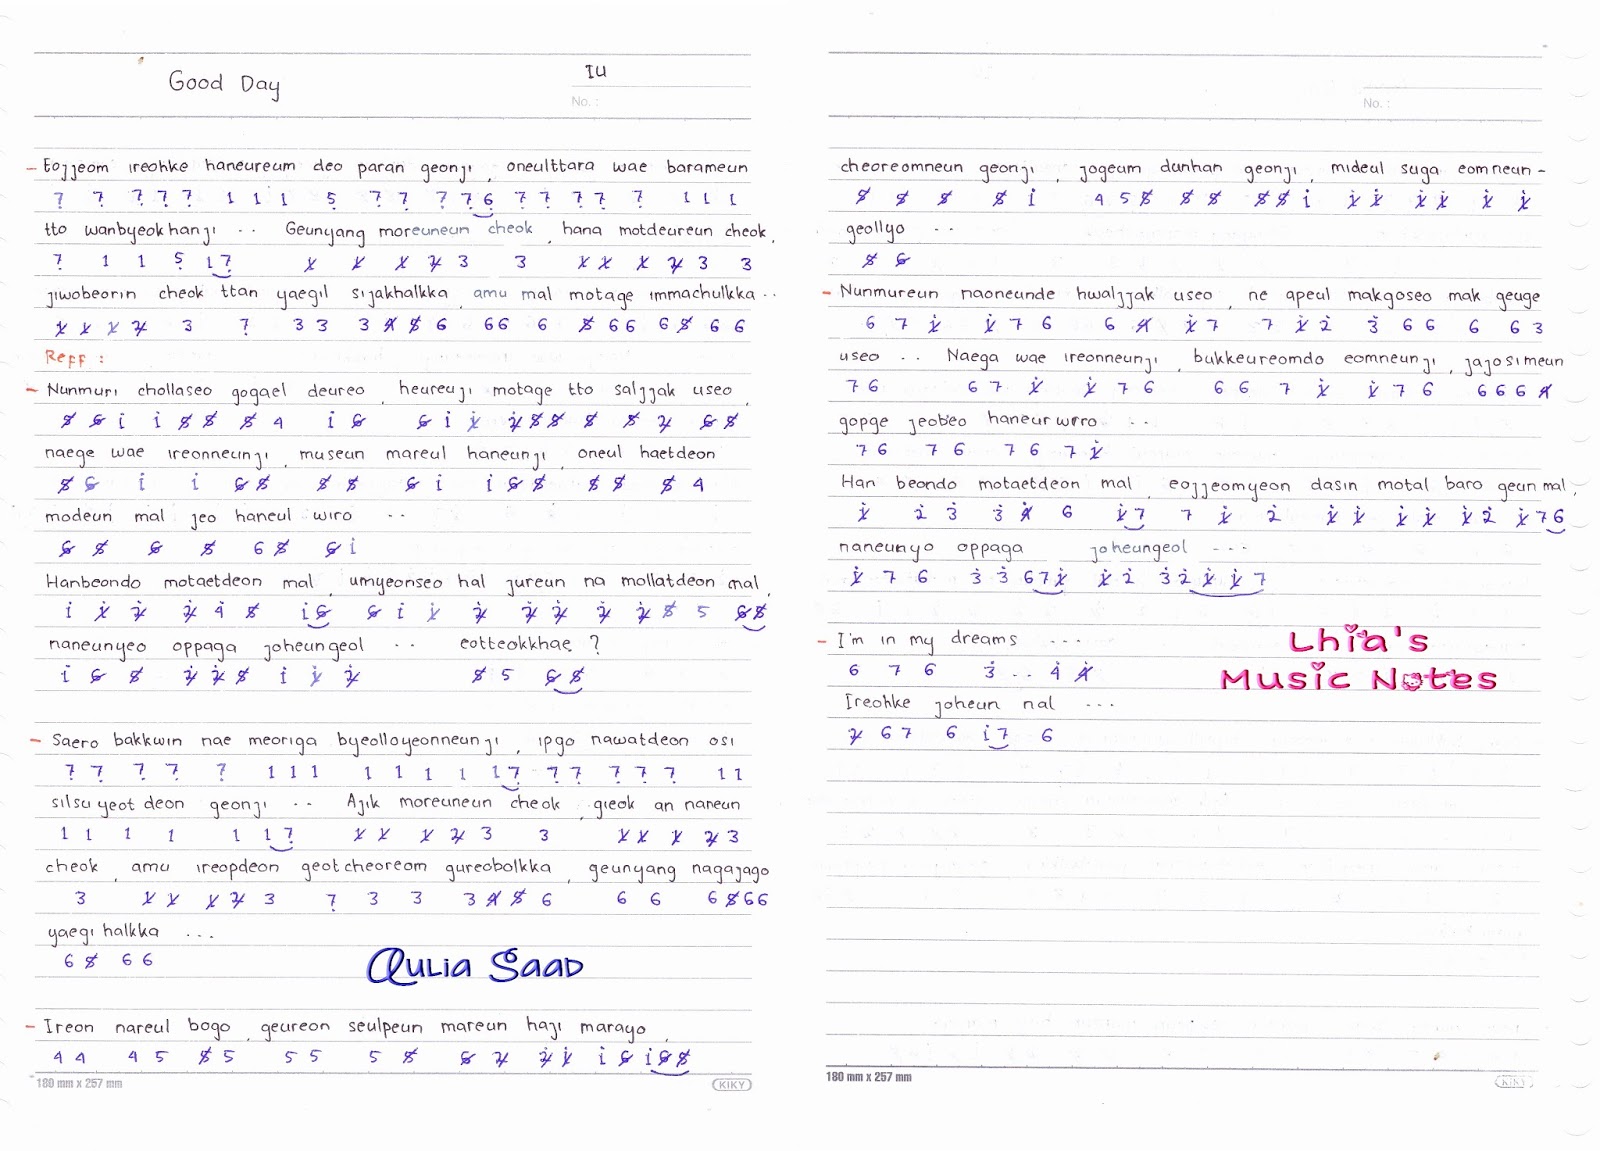 Good Day
IU
No. :
- Eojjeom ireohke haneureum deo paran geonji , oneulttara wae barameun
7 7 7 7 7 1 1 1 5 7 7 7 7 6 7 7 7 7 7 1 1 1
tto wanbyeokhanji .. Geunyang moreuneun cheok , hana motdeureun cheok,
7 1 1 5 1 7 1 1 1 2 3 3 1 1 1 2 3 3
jiwobeorin cheok ttan yaegil sijakhalkka , amu mal motage immachulkka ..
1 1 1 2 3 7 3 3 3 4 5 6 6 6 6 5 6 6 6 5 6 6
Reff :
- Nunmuri chollaseo gogael deureo , heureuji motage tto saljjak useo ,
5 6 i i 5 5 5 4 i 6 6 i 1 2 5 5 5 5 2 6 5
naege wae ireonneunji , museun mareul haneunji , oneul haetdeon
5 6 i i 6 5 5 5 6 i i 6 5 5 5 5 4
modeun mal jeo haneul wiro ..
6 5 6 5 6 5 6 i
Hanbeondo motaetdeon mal , umyeonseo hal jureun na mollatdeon mal ,
i 1 2 2 4 5 i 6 6 i 1 2 2 2 2 2 5 5 6 5
naneunyeo oppaga joheungeol .. eotteokkhae ?
i 6 5 2 2 5 i 1 2 5 5 6 5
- Saero bakkwin nae meoriga byeolloyeonneunji , ipgo nawatdeon osi
7 7 7 7 7 1 1 1 1 1 1 1 1 7 7 7 7 7 7 1 1
silsu yeot deon geonji .. Ajik moreuneun cheok , gieok an naneun
1 1 1 1 1 1 7 1 1 1 2 3 3 1 1 1 2 3
cheok , amu ireopdeon geot cheoreom gureobolkka , geunyang nagajago
3 1 1 1 2 3 7 3 3 3 4 5 6 6 6 6 5 6 6
yaegi halkka ...
6 5 6 6
Qulia Saad
- Ireon nareul bogo , geureon seulpeun mareun haji marayo ,
4 4 4 5 5 5 5 5 5 5 6 2 2 1 i 6 i 6 5
180 mm x 257 mm
KIKY
No. :
cheoreomneun geonji , jogeum dunhan geonji , mideul suga eomneun -
5 5 5 5 i 4 5 5 5 5 5 5 i 1 1 1 1 1 1
geollyo ..
5 6
- Nunmureun naoneunde hwaljjak useo , ne apeul makgoseo mak geuge
6 7 1 1 7 6 6 4 1 7 7 1 2 3 6 6 6 6 3
useo .. Naega wae ireonneunji , bukkeureomdo eomneunji , jajosimeun
7 6 6 7 1 1 7 6 6 6 7 1 1 7 6 6 6 6 4
gopge jeobeo haneur wiro ..
7 6 7 6 7 6 7 1
Han beondo motaetdeon mal , eojjeomyeon dasin motal baro geun mal ,
1 2 3 3 4 6 1 7 7 1 2 1 1 1 1 1 2 1 7 6
naneunyo oppaga joheungeol ...
1 7 6 3 3 6 7 1 1 2 3 2 1 1 7
- I'm in my dreams ...
6 7 6 3 .. 4 4
Ireohke joheun nal ...
2 6 7 6 i 7 6
Lhia's
Music Notes
180 mm x 257 mm
KIKY